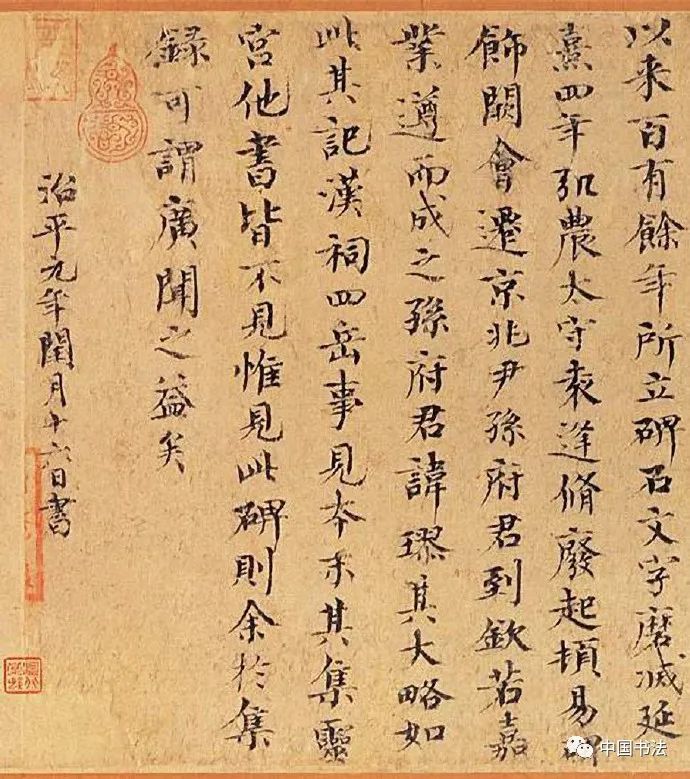 以来百有餘年所立碑石文字磨滅延
熹四年弘農太守袁逢脩廢起頓易碑
飾闕會遷京兆尹孫府君到欽若嘉
業遵而成之孫府君諱璆其大略如
此其記漢祠四岳事見本末其集靈
宮他書皆不見惟見此碑則余於集
録可謂廣聞之益矣
治平元年閏月十六日書
中国书法